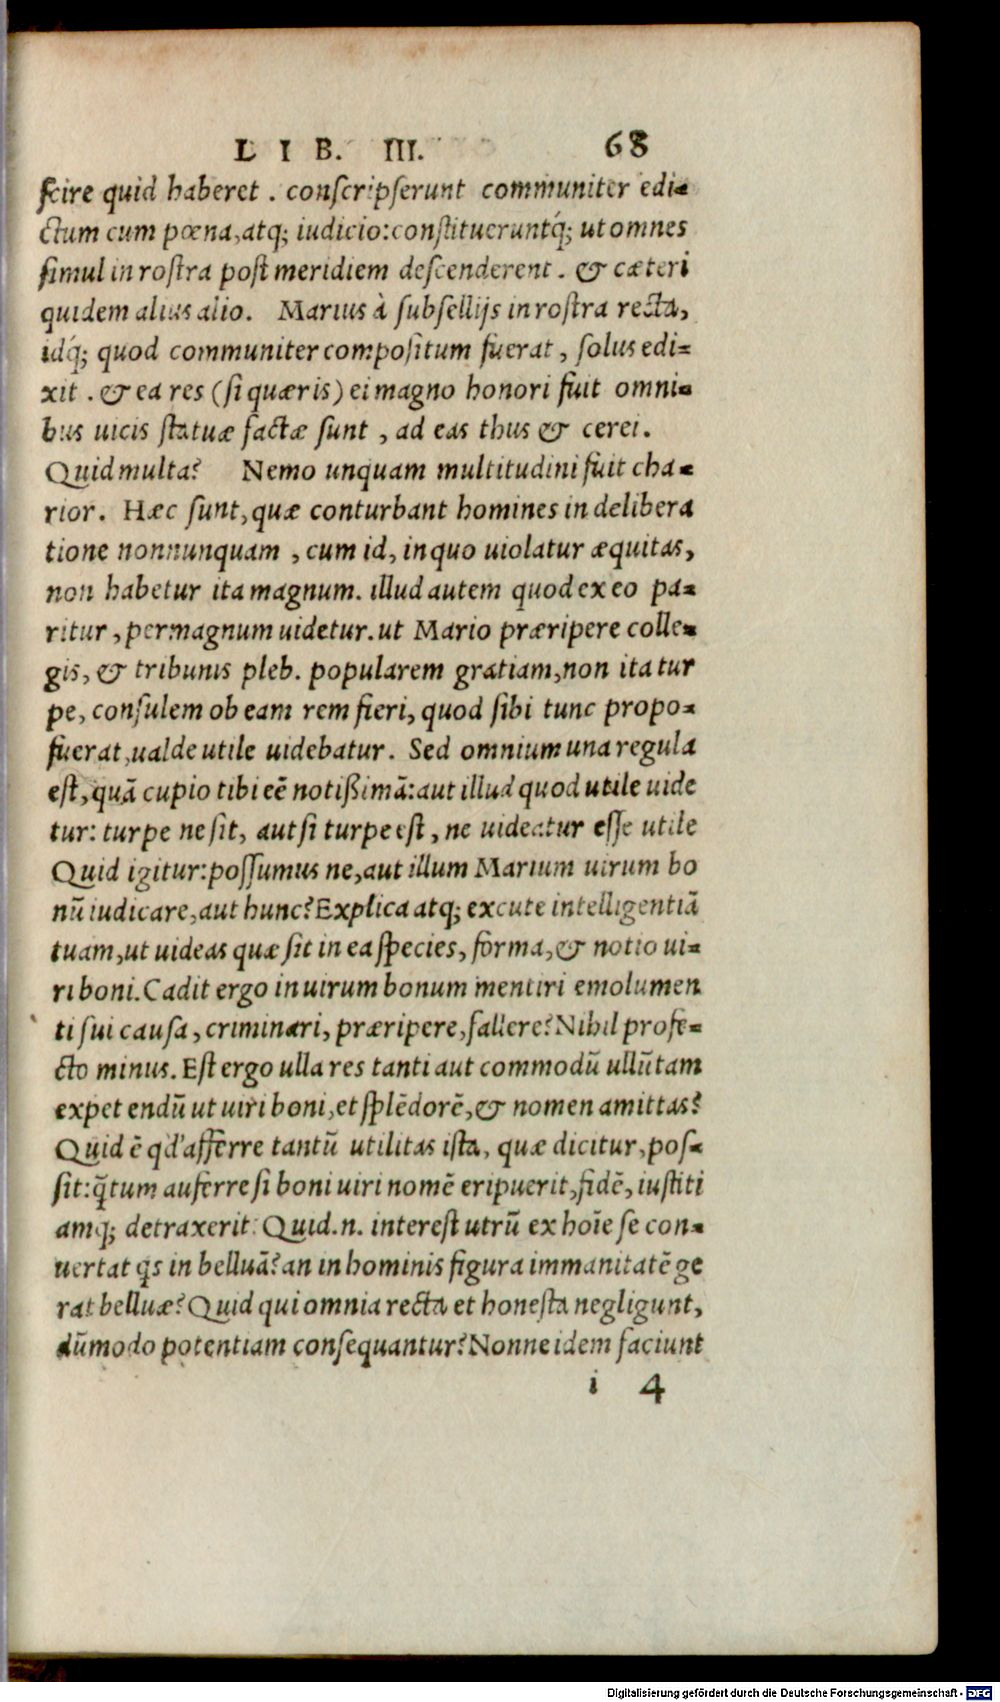 LIB. III. 68
scire quid haberet . conscripserunt communiter edi-
ctum cum pœna, atq; iudicio: constitueruntq́; ut omnes
simul in rostra post meridiem descenderent . & cæteri
quidem alius alio. Marius à subsellijs in rostra recta,
idq́; quod communiter compositum fuerat , solus edi-
xit . & ea res (si quæris) ei magno honori fuit omni-
bus uicis statuæ factæ sunt , ad eas thus & cerei.
Quid multa? Nemo unquam multitudini fuit cha-
rior. Hæc sunt, quæ conturbant homines in delibera
tione nonnunquam , cum id, in quo uiolatur æquitas,
non habetur ita magnum. illud autem quod ex eo pa-
ritur , permagnum uidetur. ut Mario præripere colle-
gis, & tribunis pleb. popularem gratiam, non ita tur
pe, consulem ob eam rem fieri, quod sibi tunc propo-
fuerat, ualde utile uidebatur. Sed omnium una regula
est, quā cupio tibi eē notißimā: aut illud quod utile uide
tur: turpe ne sit, aut si turpe est, ne uideatur esse utile
Quid igitur: possumus ne, aut illum Marium uirum bo
nū iudicare, aut hunc? Explica atq; excute intelligentiā
tuam, ut uideas quæ sit in ea species, forma, & notio ui-
ri boni. Cadit ergo in uirum bonum mentiri emolumen
ti sui causa, criminari, præripere, fallere? Nihil profe-
cto minus. Est ergo ulla res tanti aut commodū ullū tam
expetendū ut uiri boni, et splēdorē, & nomen amittas?
Quid ē qd' afferre tantū utilitas ista, quæ dicitur, pos-
sit: q̄tum auferre si boni uiri nomē eripuerit, fidē, iustiti
amq; detraxerit. Quid .n. interest utrū ex hoīe se con-
uertat q̇s in belluā? an in hominis figura immanitatē ge
rat belluæ? Quid qui omnia recta et honesta negligunt,
dūmodo potentiam consequantur? Nonne idem faciunt
i 4
Digitalisierung gefördert durch die Deutsche Forschungsgemeinschaft - DFG